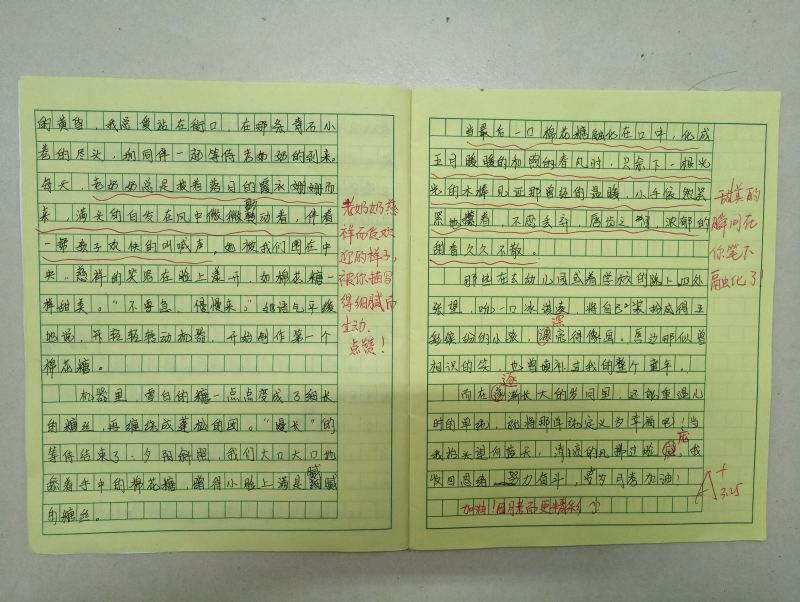 的黄昏，我总爱站在街口，在那条青石小
巷的尽头，和同伴一起等待老奶奶的到来。
每天，老奶奶总是披着落日的霞衣姗姗而
来，满头的白发在风中微微飘动着，伴着
一帮孩子欢快的叫喊声。她被我们围在中
央。慈祥的笑容在脸上漾开，如棉花糖一
样甜美。“不要急，慢慢来，”她语气平缓
地说，并轻轻转动机器，开始制作第一个
棉花糖。
机器里，雪白的糖一点点变成了细长
的糖丝，再缠绕成蓬松的团。“漫长”的
等待结束了。夕阳斜照，我们大口大口地
舔着手中的棉花糖，蹭得小脸上满是黏腻
的糖丝。
老奶奶慈
祥而受欢
迎的样子，
被你描写
得细腻而
生动.
点赞！
当最后一口棉花糖融化在口中，化成
五月暖暖的和煦的春风时，只余下一根光
光的木棒见证那曾经的温暖，小手依然
黑地攥着，不愿丢弃，唇齿之间，浓郁的
甜香久久不散。
那些在去幼儿园或者学校的路上四处
张望，吃一口冰淇凌，将自己装扮成得五
彩缤纷的小孩，漂亮得像画。唇边那似曾
相识的笑，也曾填补过我的整个童年。
而在逐渐长大的岁月里，还能重温儿
时的单纯，就将那年华定义为幸福吧！当
我抬头望向蓝天，清凉的风拂过脸庞，我
收回思绪，努力奋斗，为月考加油！
甜美的
瞬间在
你笔下
融化了！
漂
逐
庞
A+
3.25
加油！因月考而更精彩